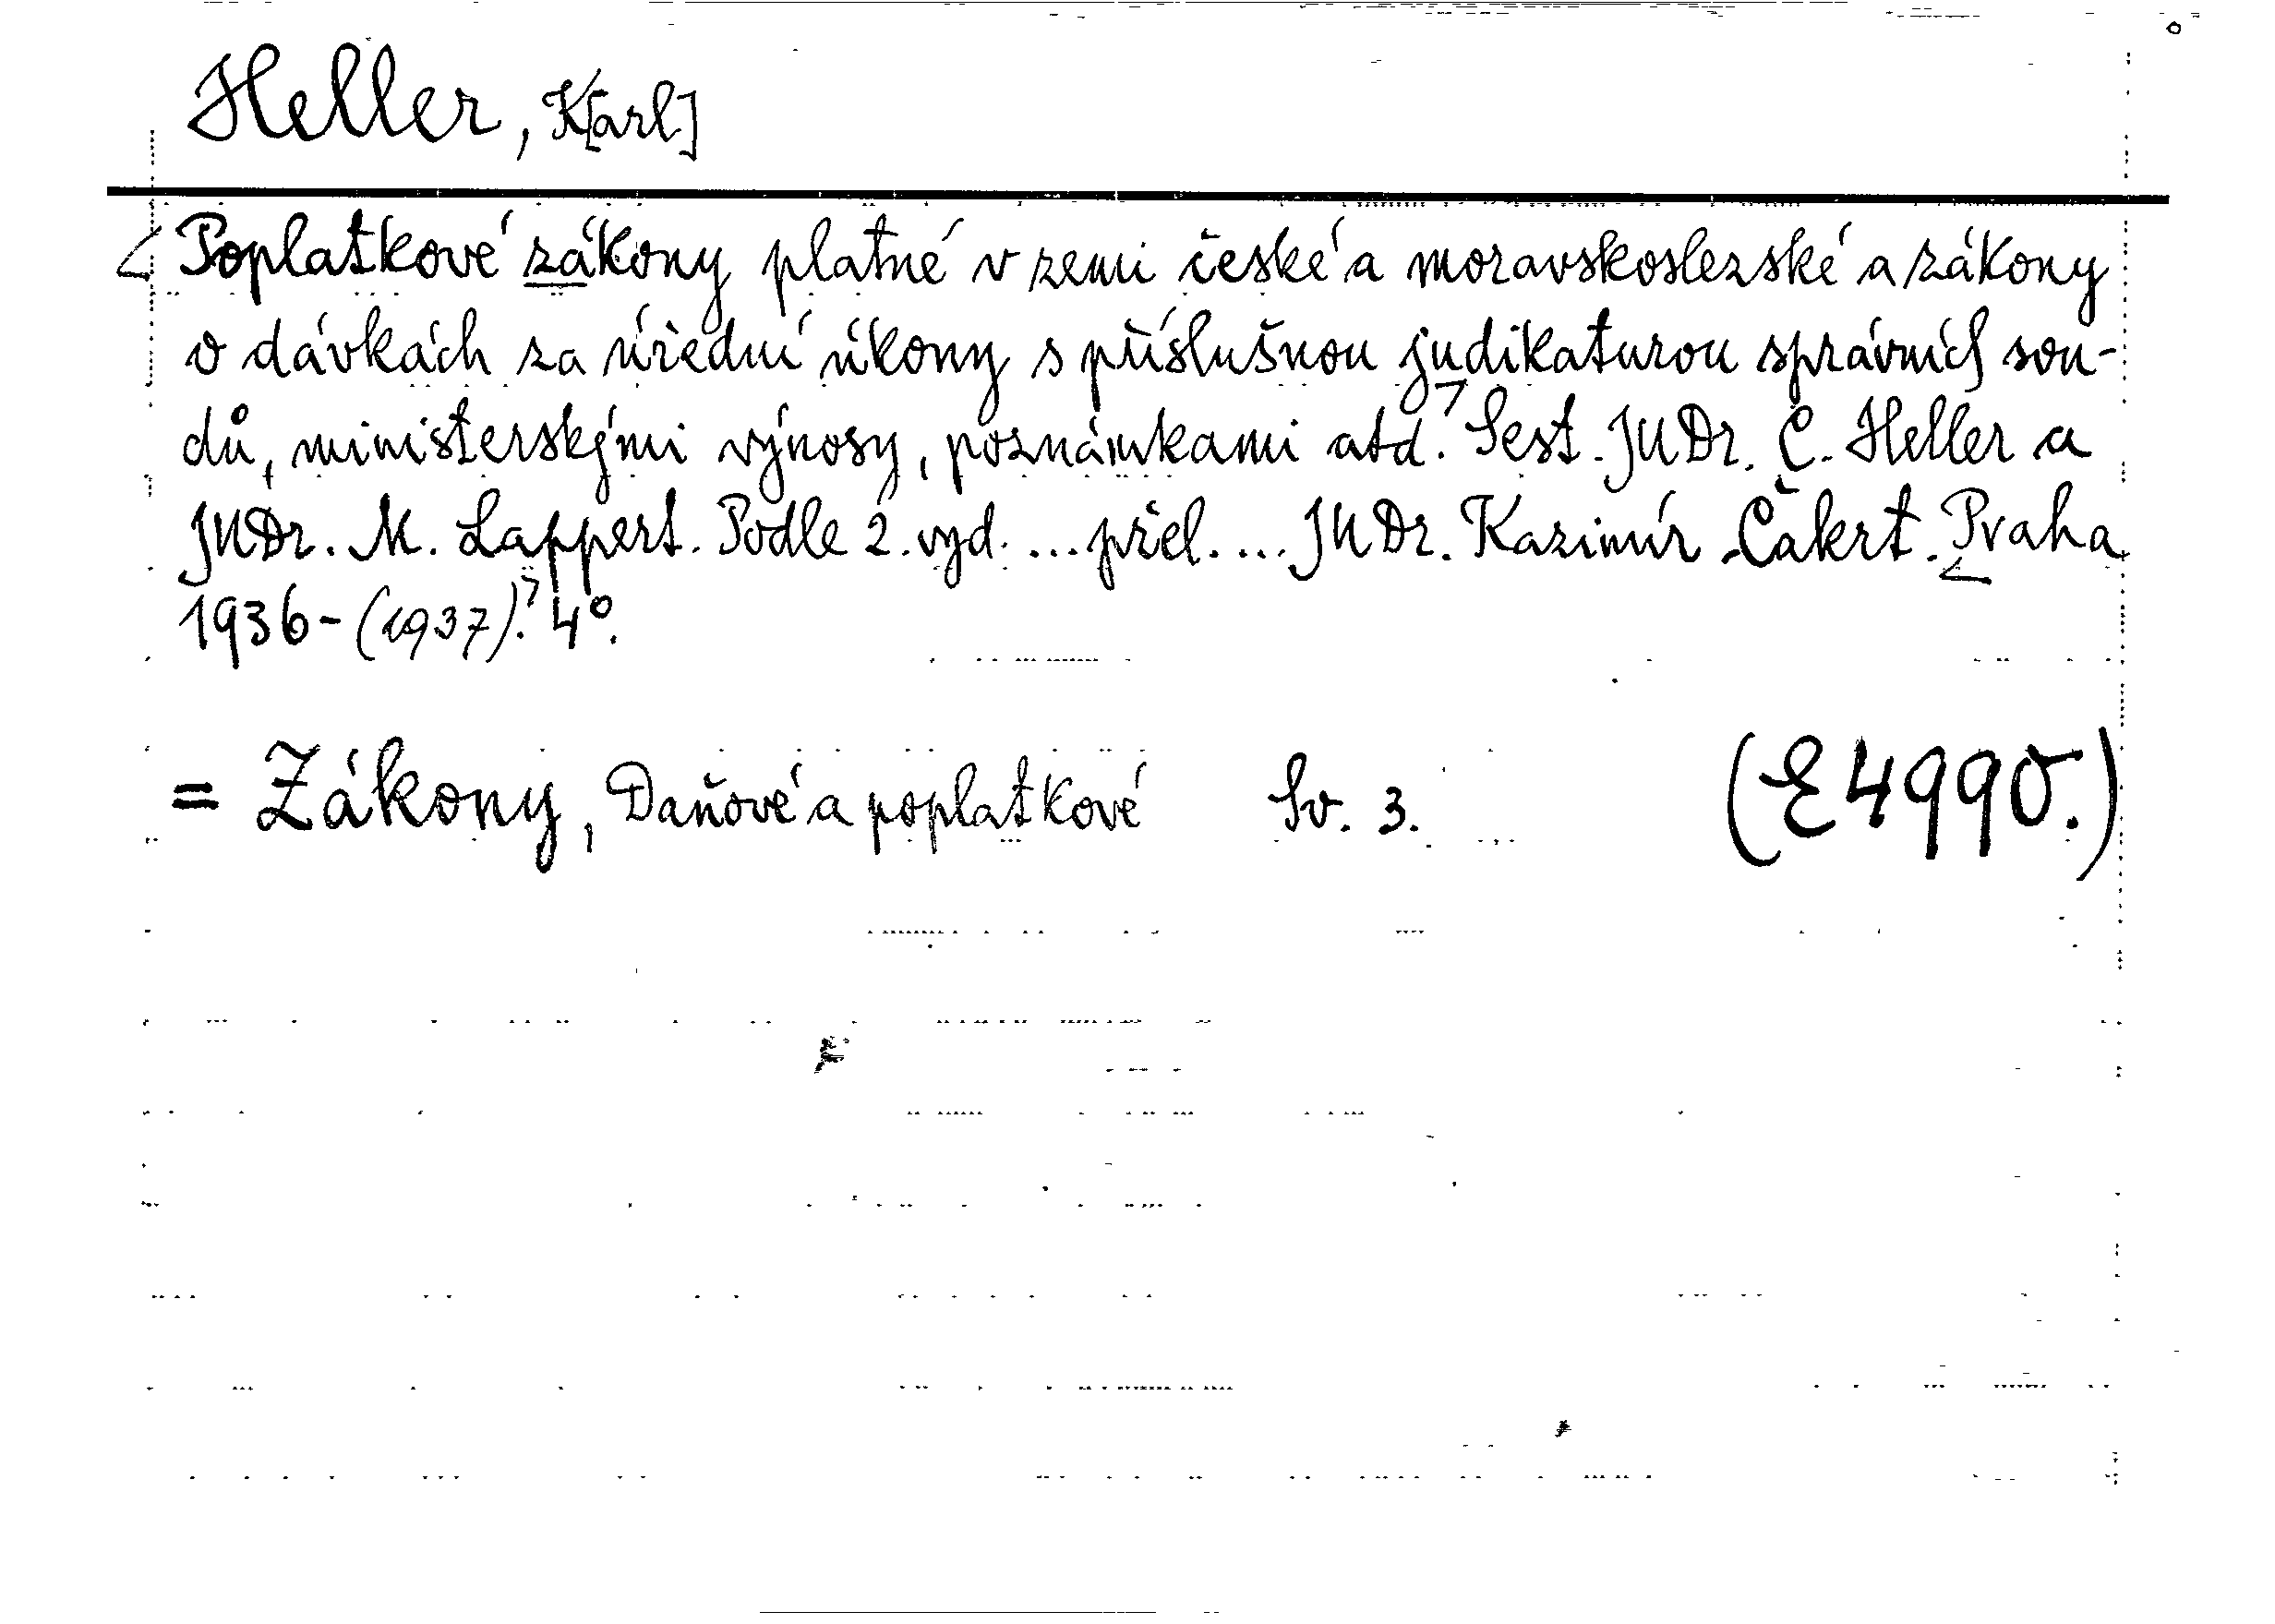 Heller, K[arl]
Poplatkové zákony platné v zemi české a moravskoslezské a zákony
o dávkách za úřední úkony s příslušnou judikaturou správních sou-
dů, ministerskými výnosy, poznámkami atd. Sest. JUDr. C. Heller a
JUDr. M. Lappert. Podle 2. vyd. ... přel. ... JUDr. Kazimír Čakrt. Praha
1936-(1937). 4°.
= Zákony, Daňové a poplatkové Sv. 3. (E 4990.)